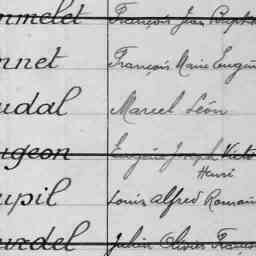 mmelet François Jean Baptis
nnet François Marie Eugèn
udal Marcel Léon
ugeon Eugène Joseph Victo
Henri
upil Louis Alfred Romain
urdel Julien Olivier Franço